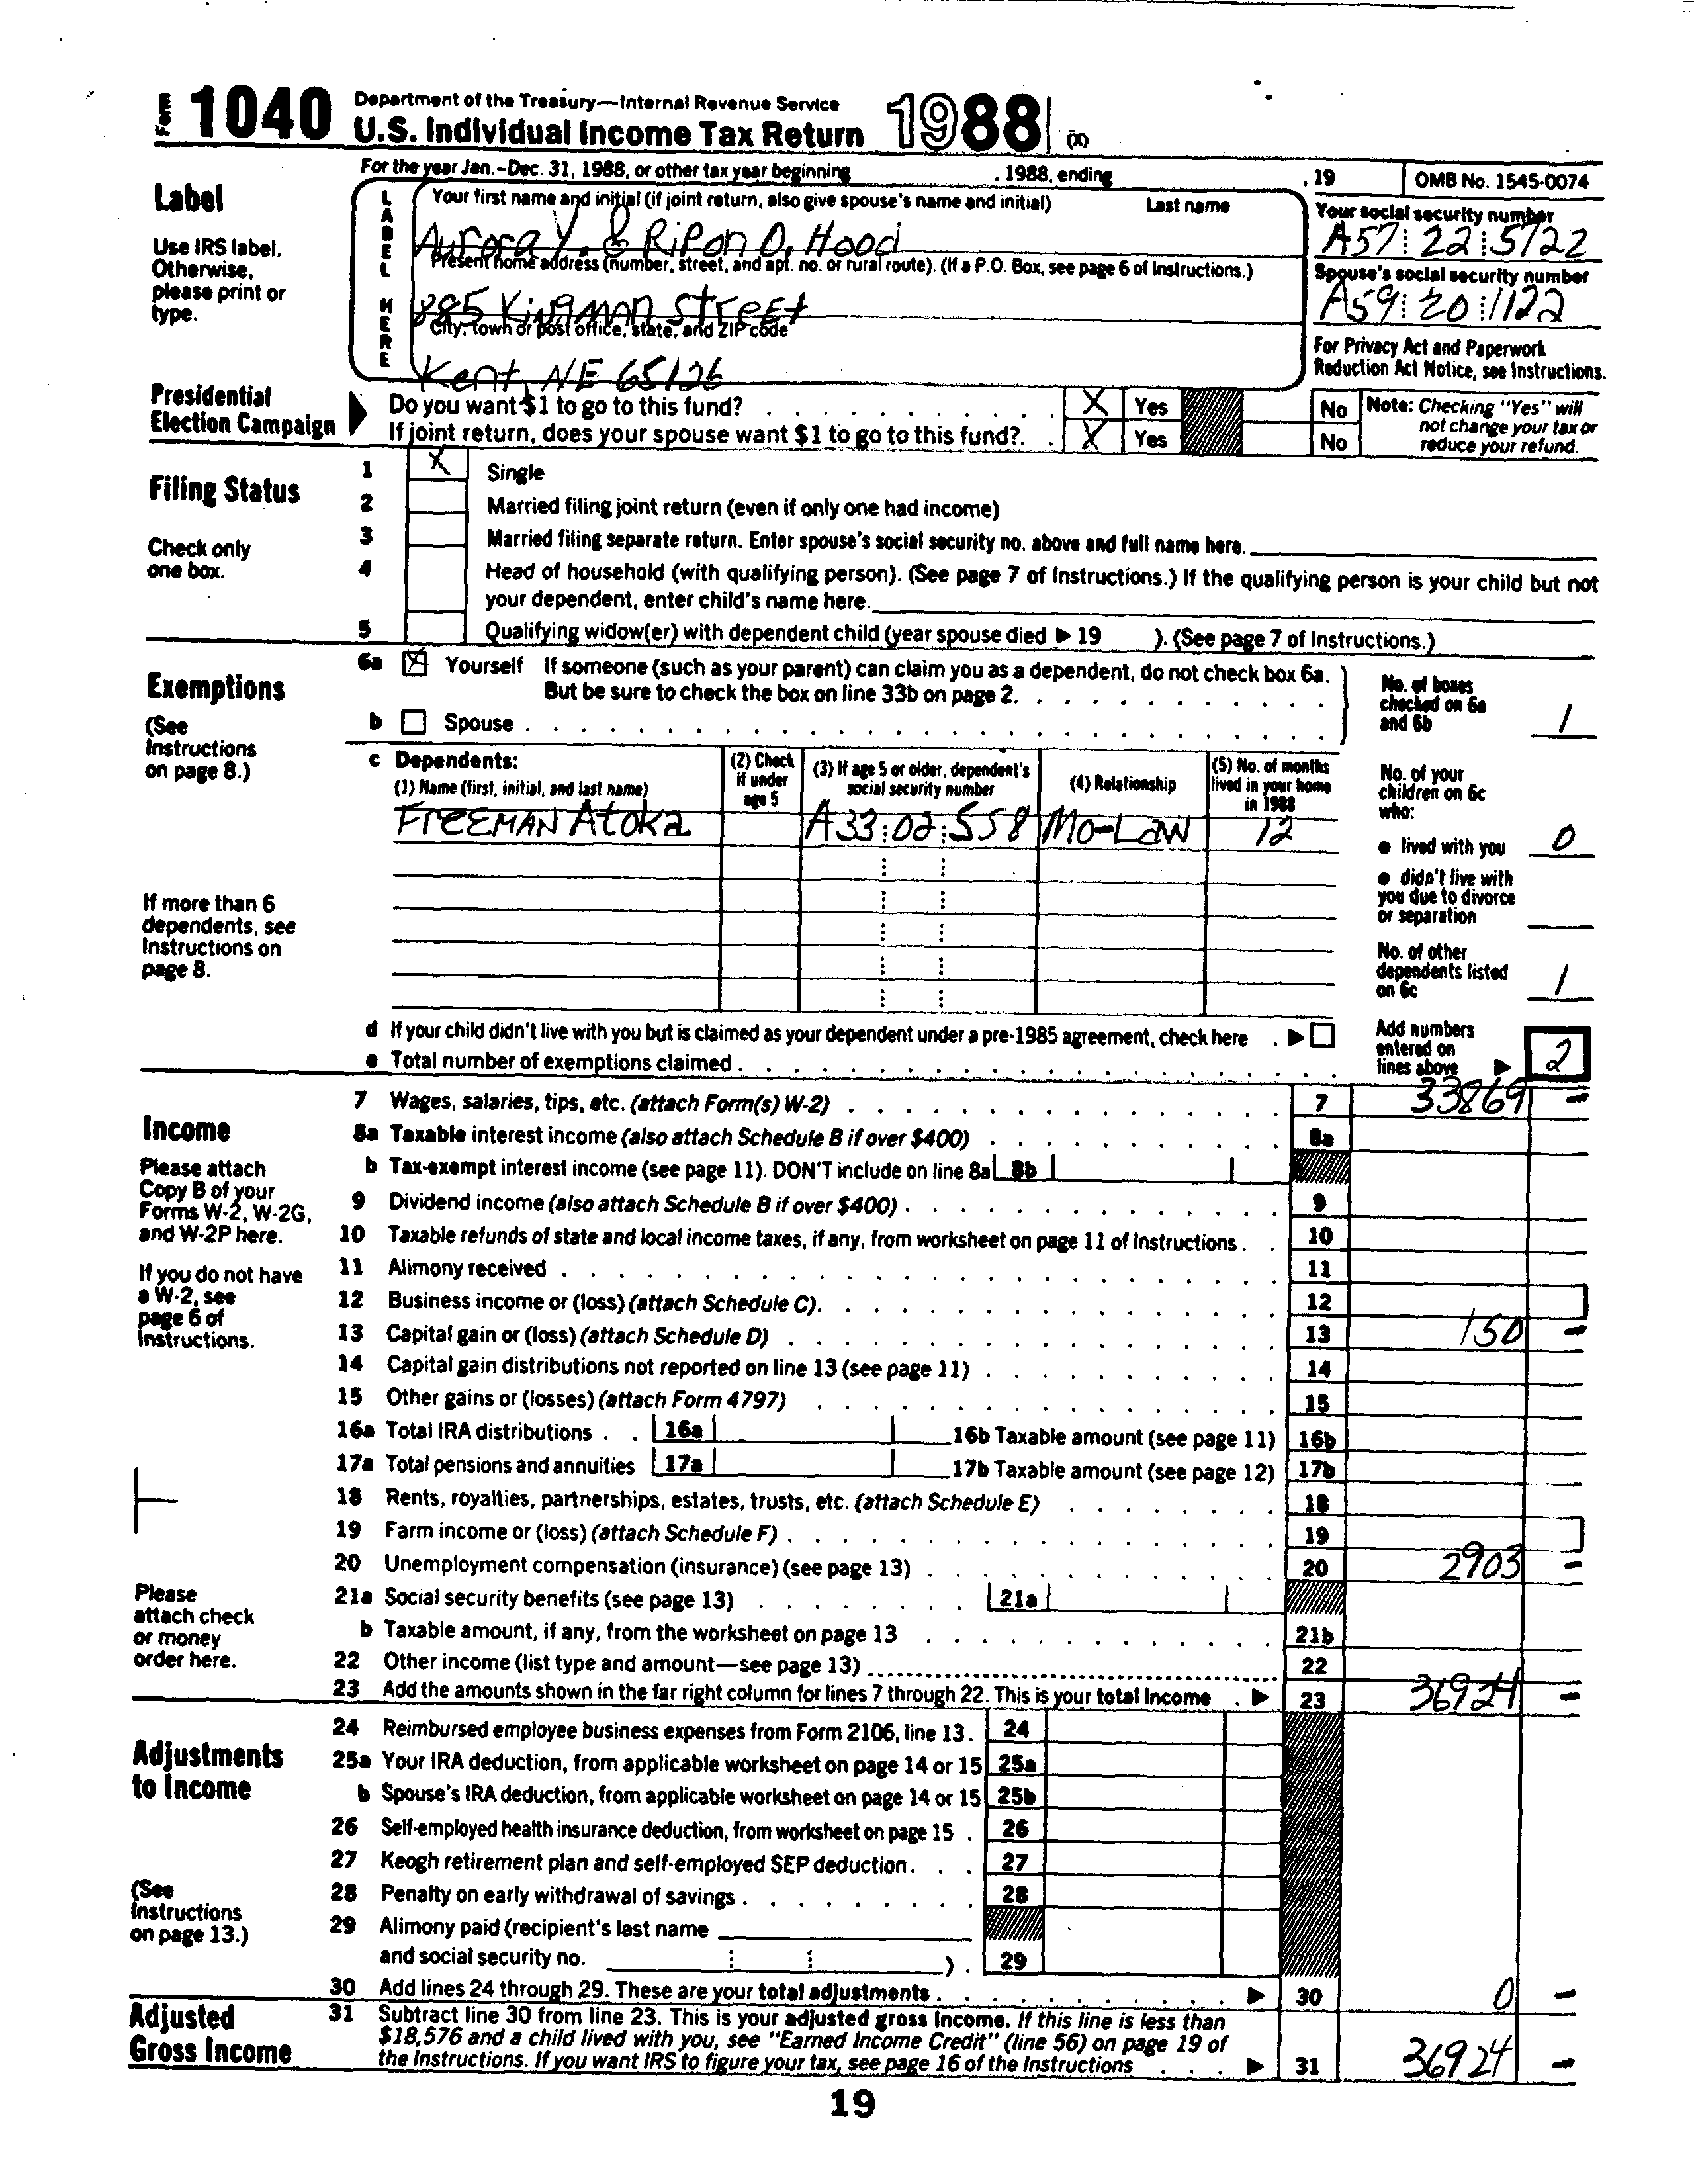 Form 1040 Department of the Treasury—Internal Revenue Service
U.S. Individual Income Tax Return 1988 (X)
For the year Jan.-Dec. 31, 1988, or other tax year beginning , 1988, ending , 19 OMB No. 1545-0074
Label
Use IRS label.
Otherwise,
please print or
type.
LABEL HERE
Your first name and initial (if joint return, also give spouse's name and initial) Last name
Aurora Y. & Ripon O. Hood
Your social security number
A57 22 5722
Present home address (number, street, and apt. no. or rural route). (If a P.O. Box, see page 6 of Instructions.)
885 Kingman Street
Spouse's social security number
A59 20 1122
City, town or post office, state, and ZIP code
Kent, NE 65126
For Privacy Act and Paperwork
Reduction Act Notice, see Instructions.
Presidential
Election Campaign
Do you want $1 to go to this fund? X Yes No
If joint return, does your spouse want $1 to go to this fund? X Yes No
Note: Checking "Yes" will
not change your tax or
reduce your refund.
Filing Status
Check only
one box.
1 X Single
2 Married filing joint return (even if only one had income)
3 Married filing separate return. Enter spouse's social security no. above and full name here.
4 Head of household (with qualifying person). (See page 7 of Instructions.) If the qualifying person is your child but not
your dependent, enter child's name here.
5 Qualifying widow(er) with dependent child (year spouse died ▶ 19 ). (See page 7 of Instructions.)
Exemptions
(See
Instructions
on page 8.)
6a X Yourself If someone (such as your parent) can claim you as a dependent, do not check box 6a.
But be sure to check the box on line 33b on page 2.
b Spouse
No. of boxes
checked on 6a
and 6b 1
c Dependents:
(1) Name (first, initial, and last name)
(2) Check
if under
age 5
(3) If age 5 or older, dependent's
social security number
(4) Relationship
(5) No. of months
lived in your home
in 1988
Freeman Atoka A33 02 558 Mo-Law 12
No. of your
children on 6c
who:
● lived with you 0
● didn't live with
you due to divorce
or separation
If more than 6
dependents, see
Instructions on
page 8.
No. of other
dependents listed
on 6c 1
d If your child didn't live with you but is claimed as your dependent under a pre-1985 agreement, check here ▶
e Total number of exemptions claimed
Add numbers
entered on
lines above ▶ 2
Income
Please attach
Copy B of your
Forms W-2, W-2G,
and W-2P here.
If you do not have
a W-2, see
page 6 of
Instructions.
Please
attach check
or money
order here.
7 Wages, salaries, tips, etc. (attach Form(s) W-2) 7 33869 -
8a Taxable interest income (also attach Schedule B if over $400) 8a
b Tax-exempt interest income (see page 11). DON'T include on line 8a 8b
9 Dividend income (also attach Schedule B if over $400) 9
10 Taxable refunds of state and local income taxes, if any, from worksheet on page 11 of Instructions 10
11 Alimony received 11
12 Business income or (loss) (attach Schedule C) 12
13 Capital gain or (loss) (attach Schedule D) 13 150 -
14 Capital gain distributions not reported on line 13 (see page 11) 14
15 Other gains or (losses) (attach Form 4797) 15
16a Total IRA distributions 16a 16b Taxable amount (see page 11) 16b
17a Total pensions and annuities 17a 17b Taxable amount (see page 12) 17b
18 Rents, royalties, partnerships, estates, trusts, etc. (attach Schedule E) 18
19 Farm income or (loss) (attach Schedule F) 19
20 Unemployment compensation (insurance) (see page 13) 20 2903 -
21a Social security benefits (see page 13) 21a
b Taxable amount, if any, from the worksheet on page 13 21b
22 Other income (list type and amount—see page 13) 22
23 Add the amounts shown in the far right column for lines 7 through 22. This is your total income ▶ 23 36924 -
Adjustments
to Income
(See
Instructions
on page 13.)
24 Reimbursed employee business expenses from Form 2106, line 13. 24
25a Your IRA deduction, from applicable worksheet on page 14 or 15 25a
b Spouse's IRA deduction, from applicable worksheet on page 14 or 15 25b
26 Self-employed health insurance deduction, from worksheet on page 15 26
27 Keogh retirement plan and self-employed SEP deduction 27
28 Penalty on early withdrawal of savings 28
29 Alimony paid (recipient's last name
and social security no. ) 29
30 Add lines 24 through 29. These are your total adjustments ▶ 30 0 -
Adjusted
Gross Income
31 Subtract line 30 from line 23. This is your adjusted gross income. If this line is less than
$18,576 and a child lived with you, see "Earned Income Credit" (line 56) on page 19 of
the Instructions. If you want IRS to figure your tax, see page 16 of the Instructions ▶ 31 36924 -
19